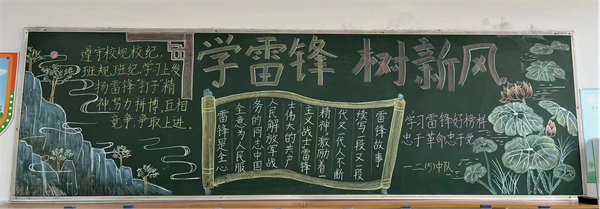 学雷锋 树新风
遵守校规校纪,
班规班纪,学习上发
扬雷锋钉子精
神努力拼搏,互相
竞争,争取上进。
雷锋是全心
全意为人民服
务的同志中国
人民解放军战
士伟大的共产
主义战士雷锋
精神激励着
代又一代人不断
续写一段又一段
雷锋故事
学习雷锋好榜样
忠于革命忠于党